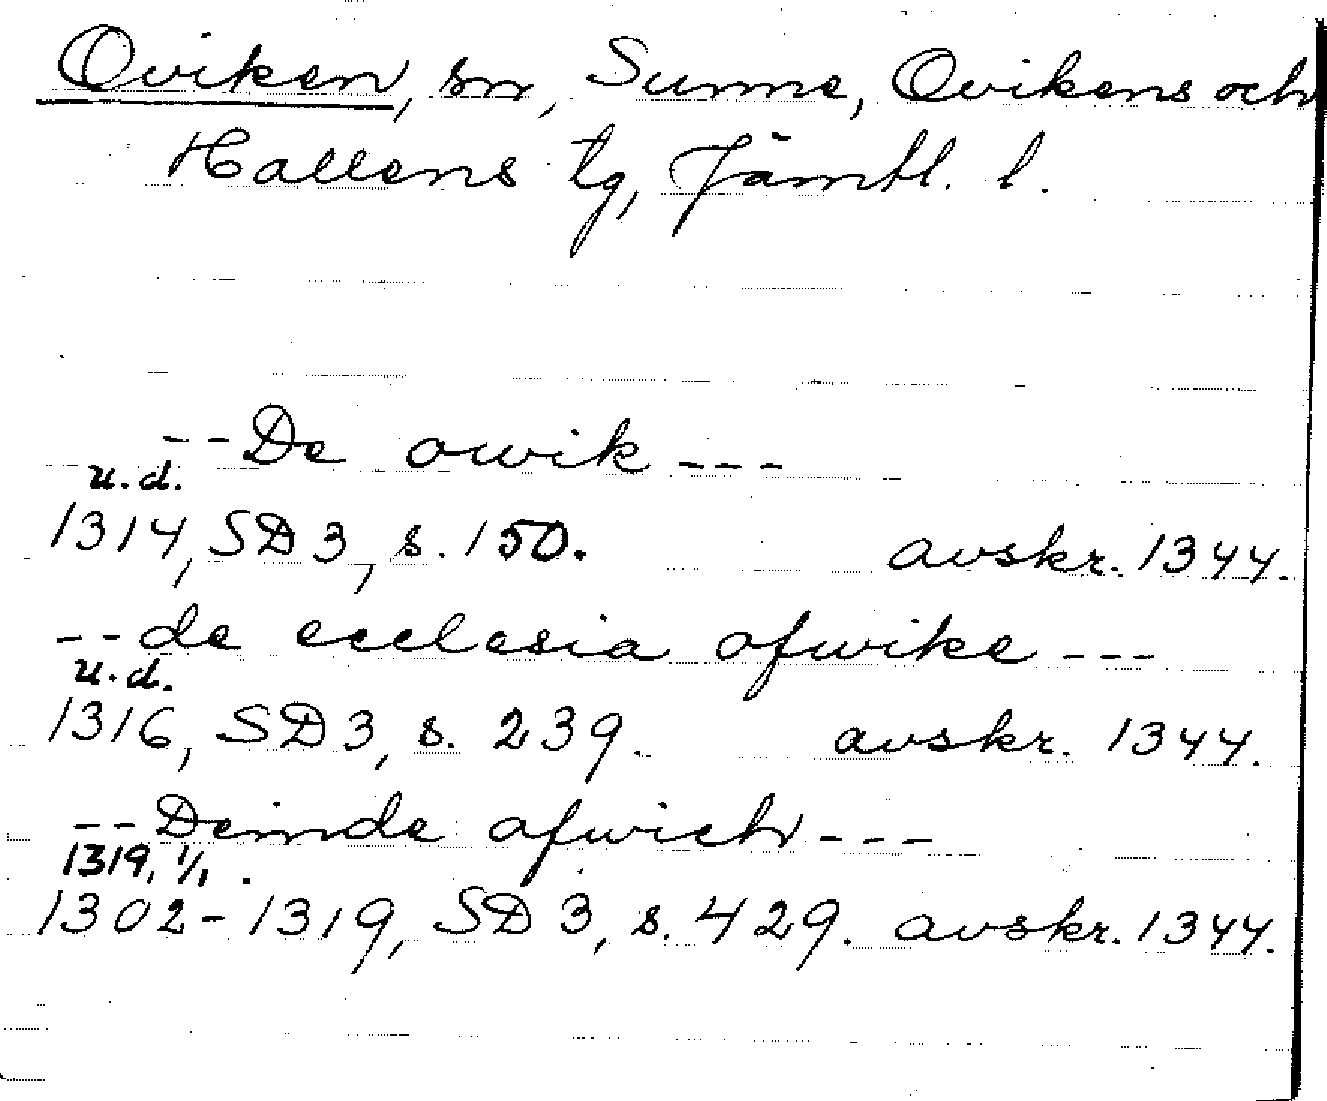 Oviken, sn, Sunne, Ovikens och
Hallens tg, Jämtl. l.
--De owik---
u.d.
1314, SD3, s. 150. avskr. 1344.
--de ecclesia ofwike---
u.d.
1316, SD3, s. 239. avskr. 1344.
--Deinde ofwich---
1319, 1/1.
1302-1319, SD3, s. 429. avskr. 1344.